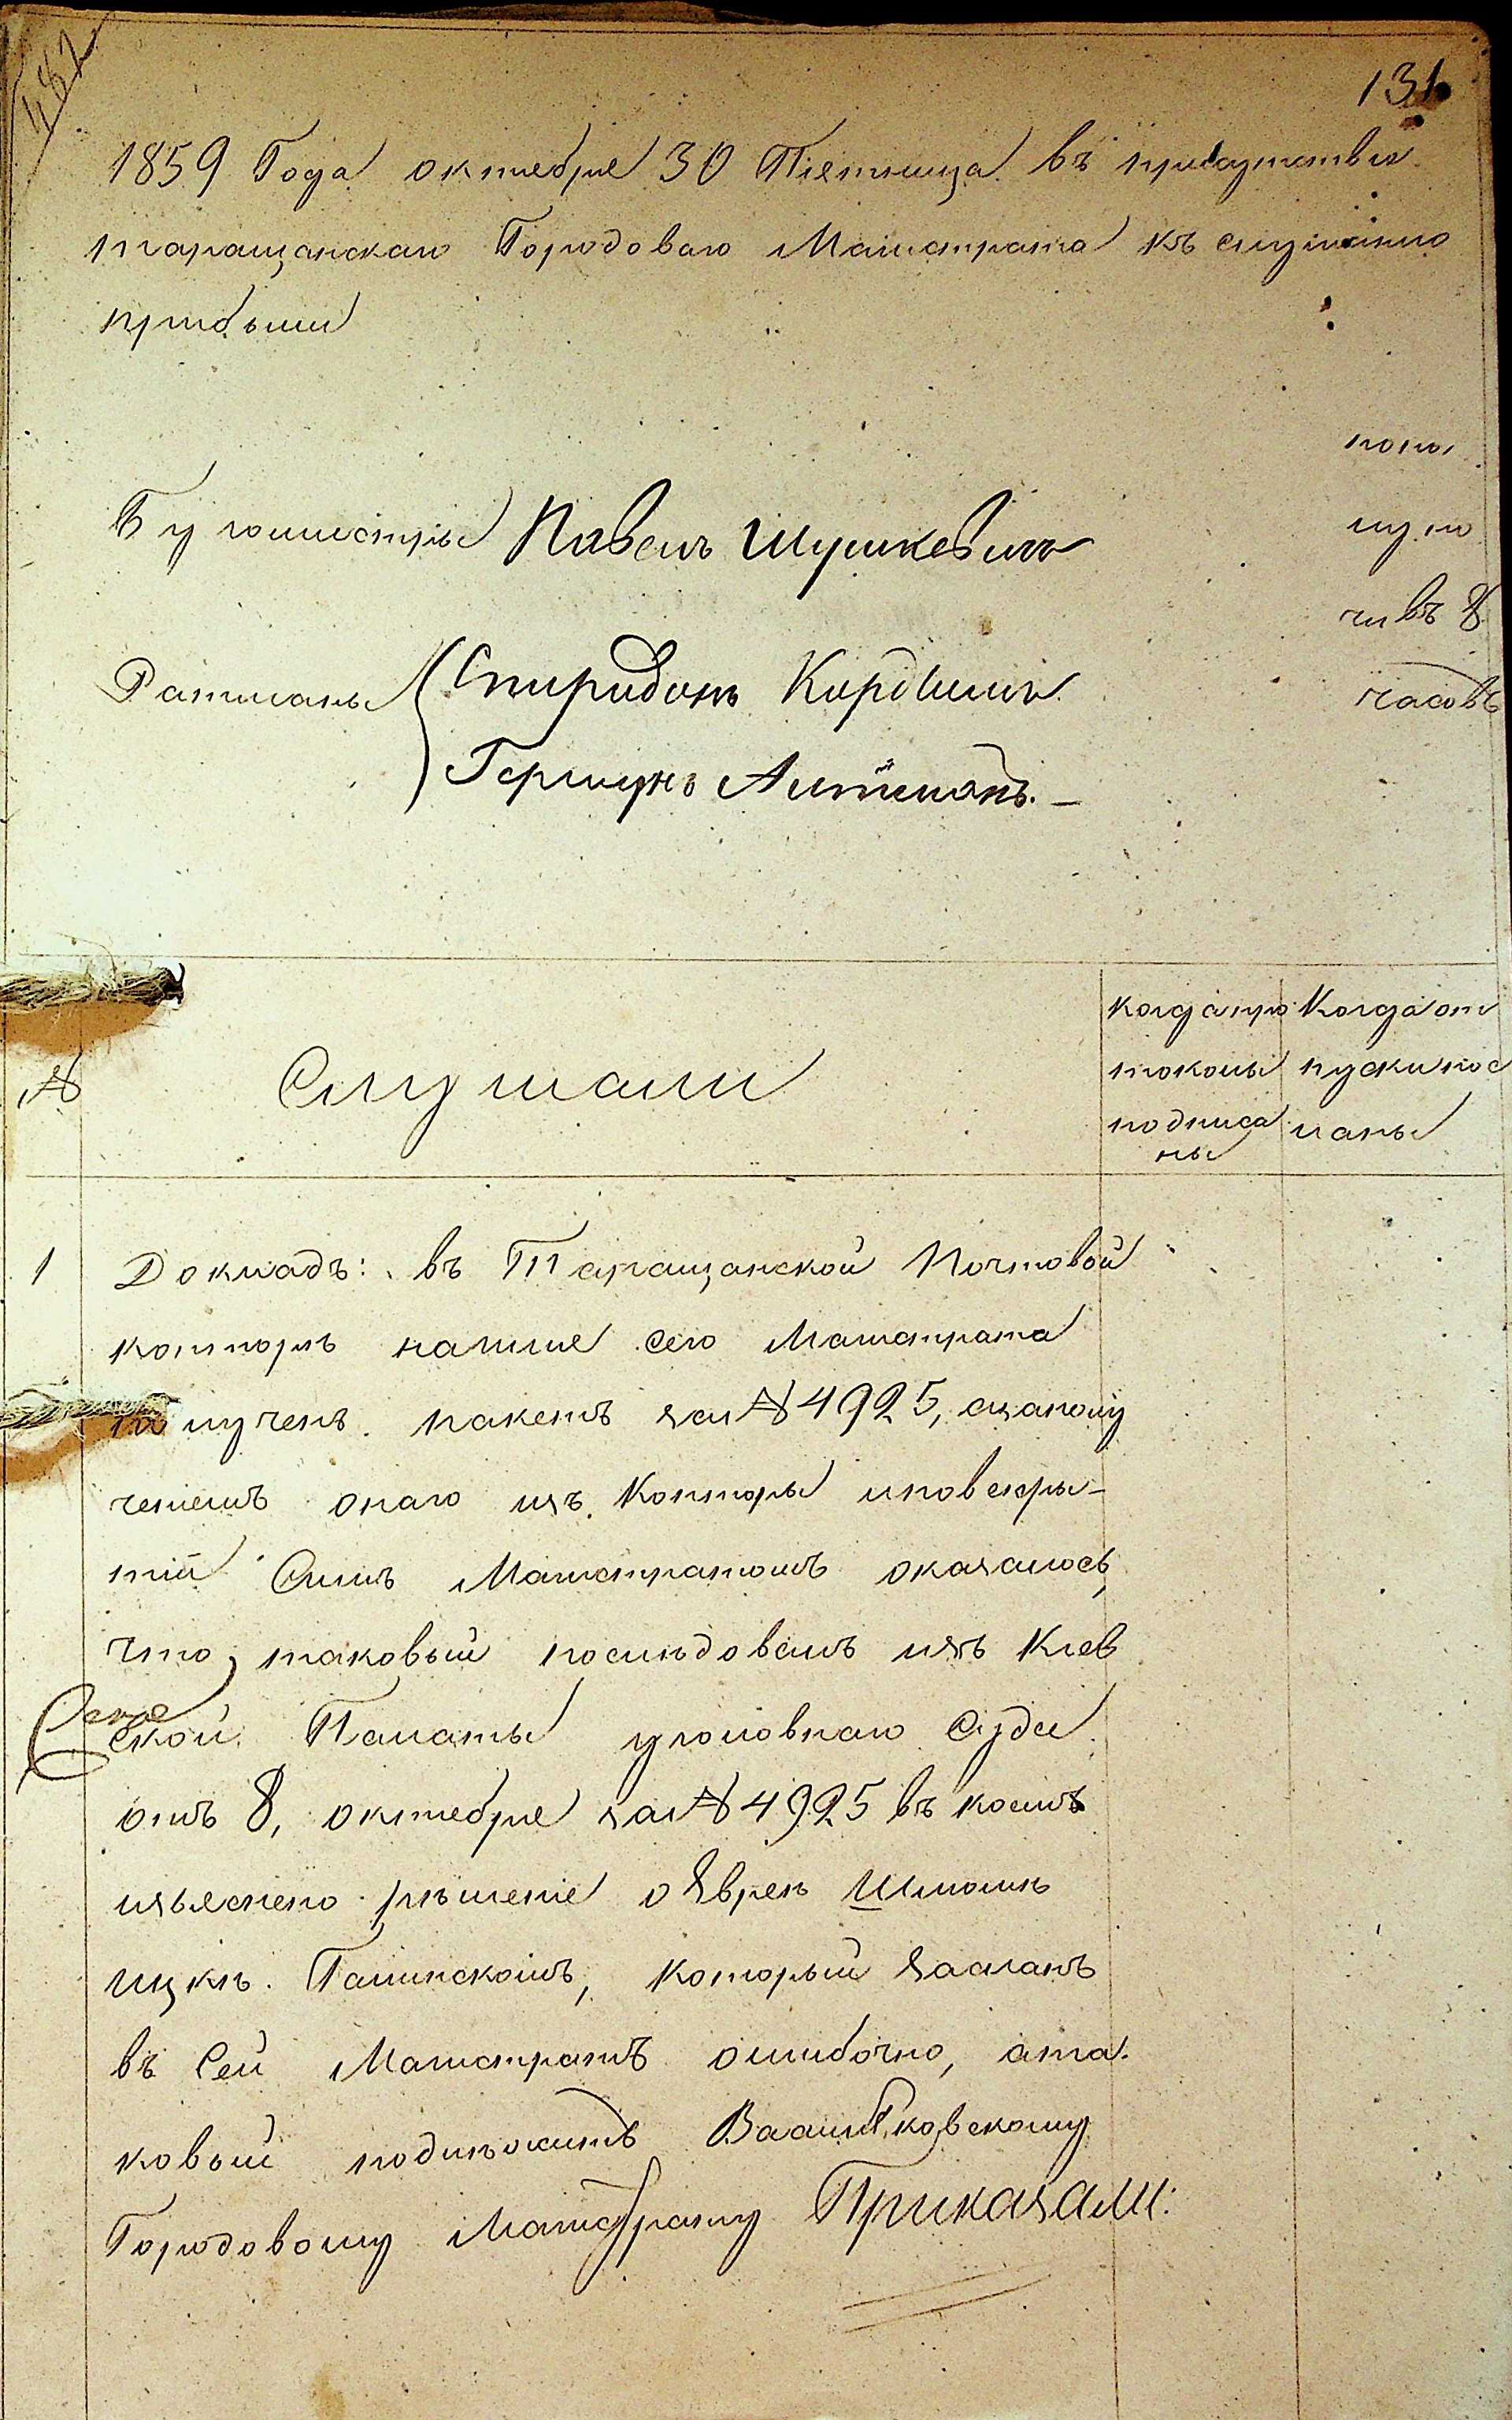 131
1859 Года октебря 30 Піетница въ присутствіи
таращанскаго Городоваго Магистрата къ слушанію
прибыли
попо
лу но
чи въ 8
часовъ
Бургомистры Павелъ Шушкевичъ
Ратманы Спиридонъ Кордышъ
Гершунъ Алтманъ.
№ Слушали
когда про
токолы
подписа
ны
Когда от
пуски пос
ланы
1 Докладъ: въ Таращанской Почтовой
конторѣ на имя сего Магистрата
полученъ пакетъ за № 4925, а заполу
чениемъ онаго изъ Конторы и по вскры-
тіи Симъ Магистратомъ оказалось,
что таковый послѣдовалъ изъ Киев
ской Палаты уголовнаго Суда
отъ 8, октебря за № 4925 въ коемъ
изъяснено рѣшеніе о Яврея Шмоиль
ицкѣ Галинскомъ, который засланъ
въ Сей Магистратъ ошибочно, а та
ковый подлѣжитъ Васильковскому
Городовому Магистрату Приказали: